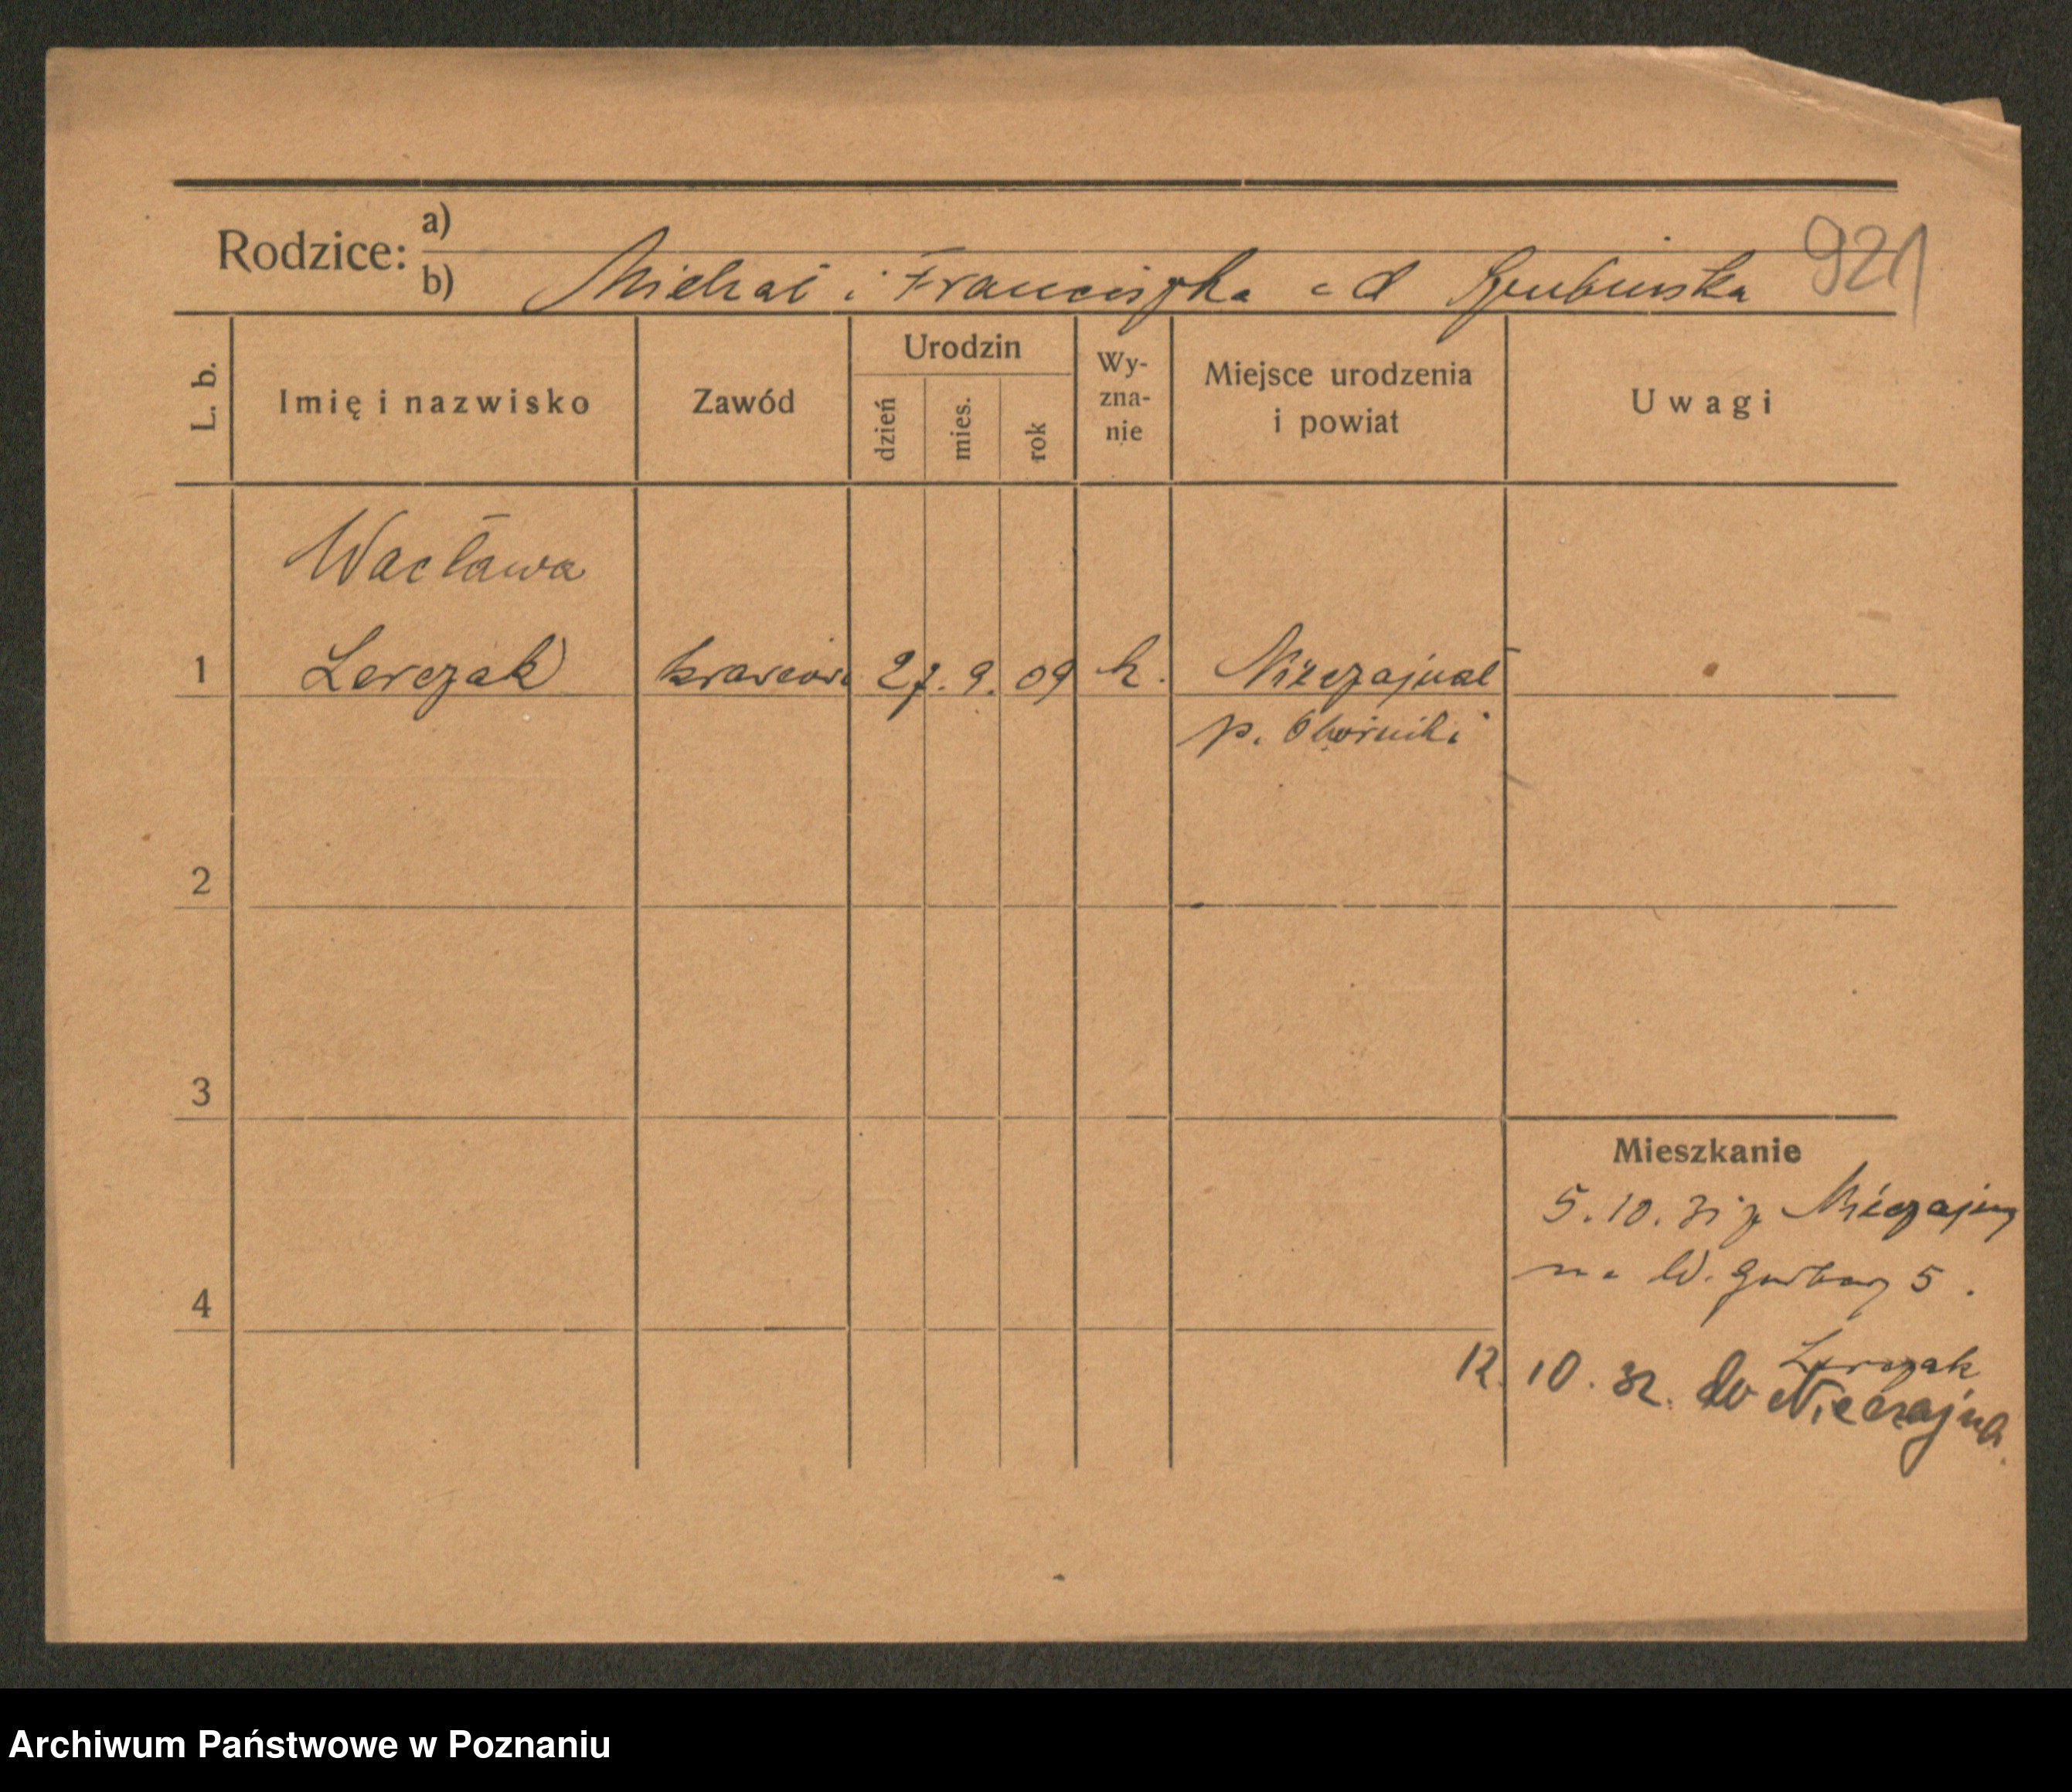 Rodzice: a)
b) Michał i Franciszka
921
L. b.
Imię i nazwisko
Zawód
Urodzin
dzień
mies.
rok
Wy-
zna-
nie
Miejsce urodzenia
i powiat
Uwagi
Wacława
1 Lerczak krawcowa 27. 9. 09 k.
p. Oborniki
2
3
4
Mieszkanie
5. 10. 31 z
na W. Garbary 5.
Lerczak
12. 10. 32. do Nieczajna.
Archiwum Państwowe w Poznaniu